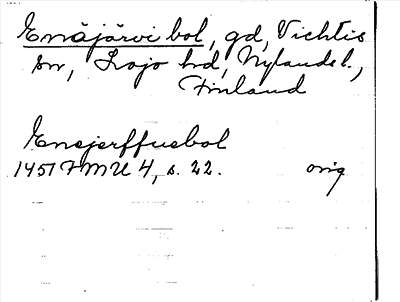 Enäjärvi bol, gd, Vichtis
sn, Lojo hd, Nylands l.,
Finland
Enejerffuebol
1451 FMU 4, s. 22. orig